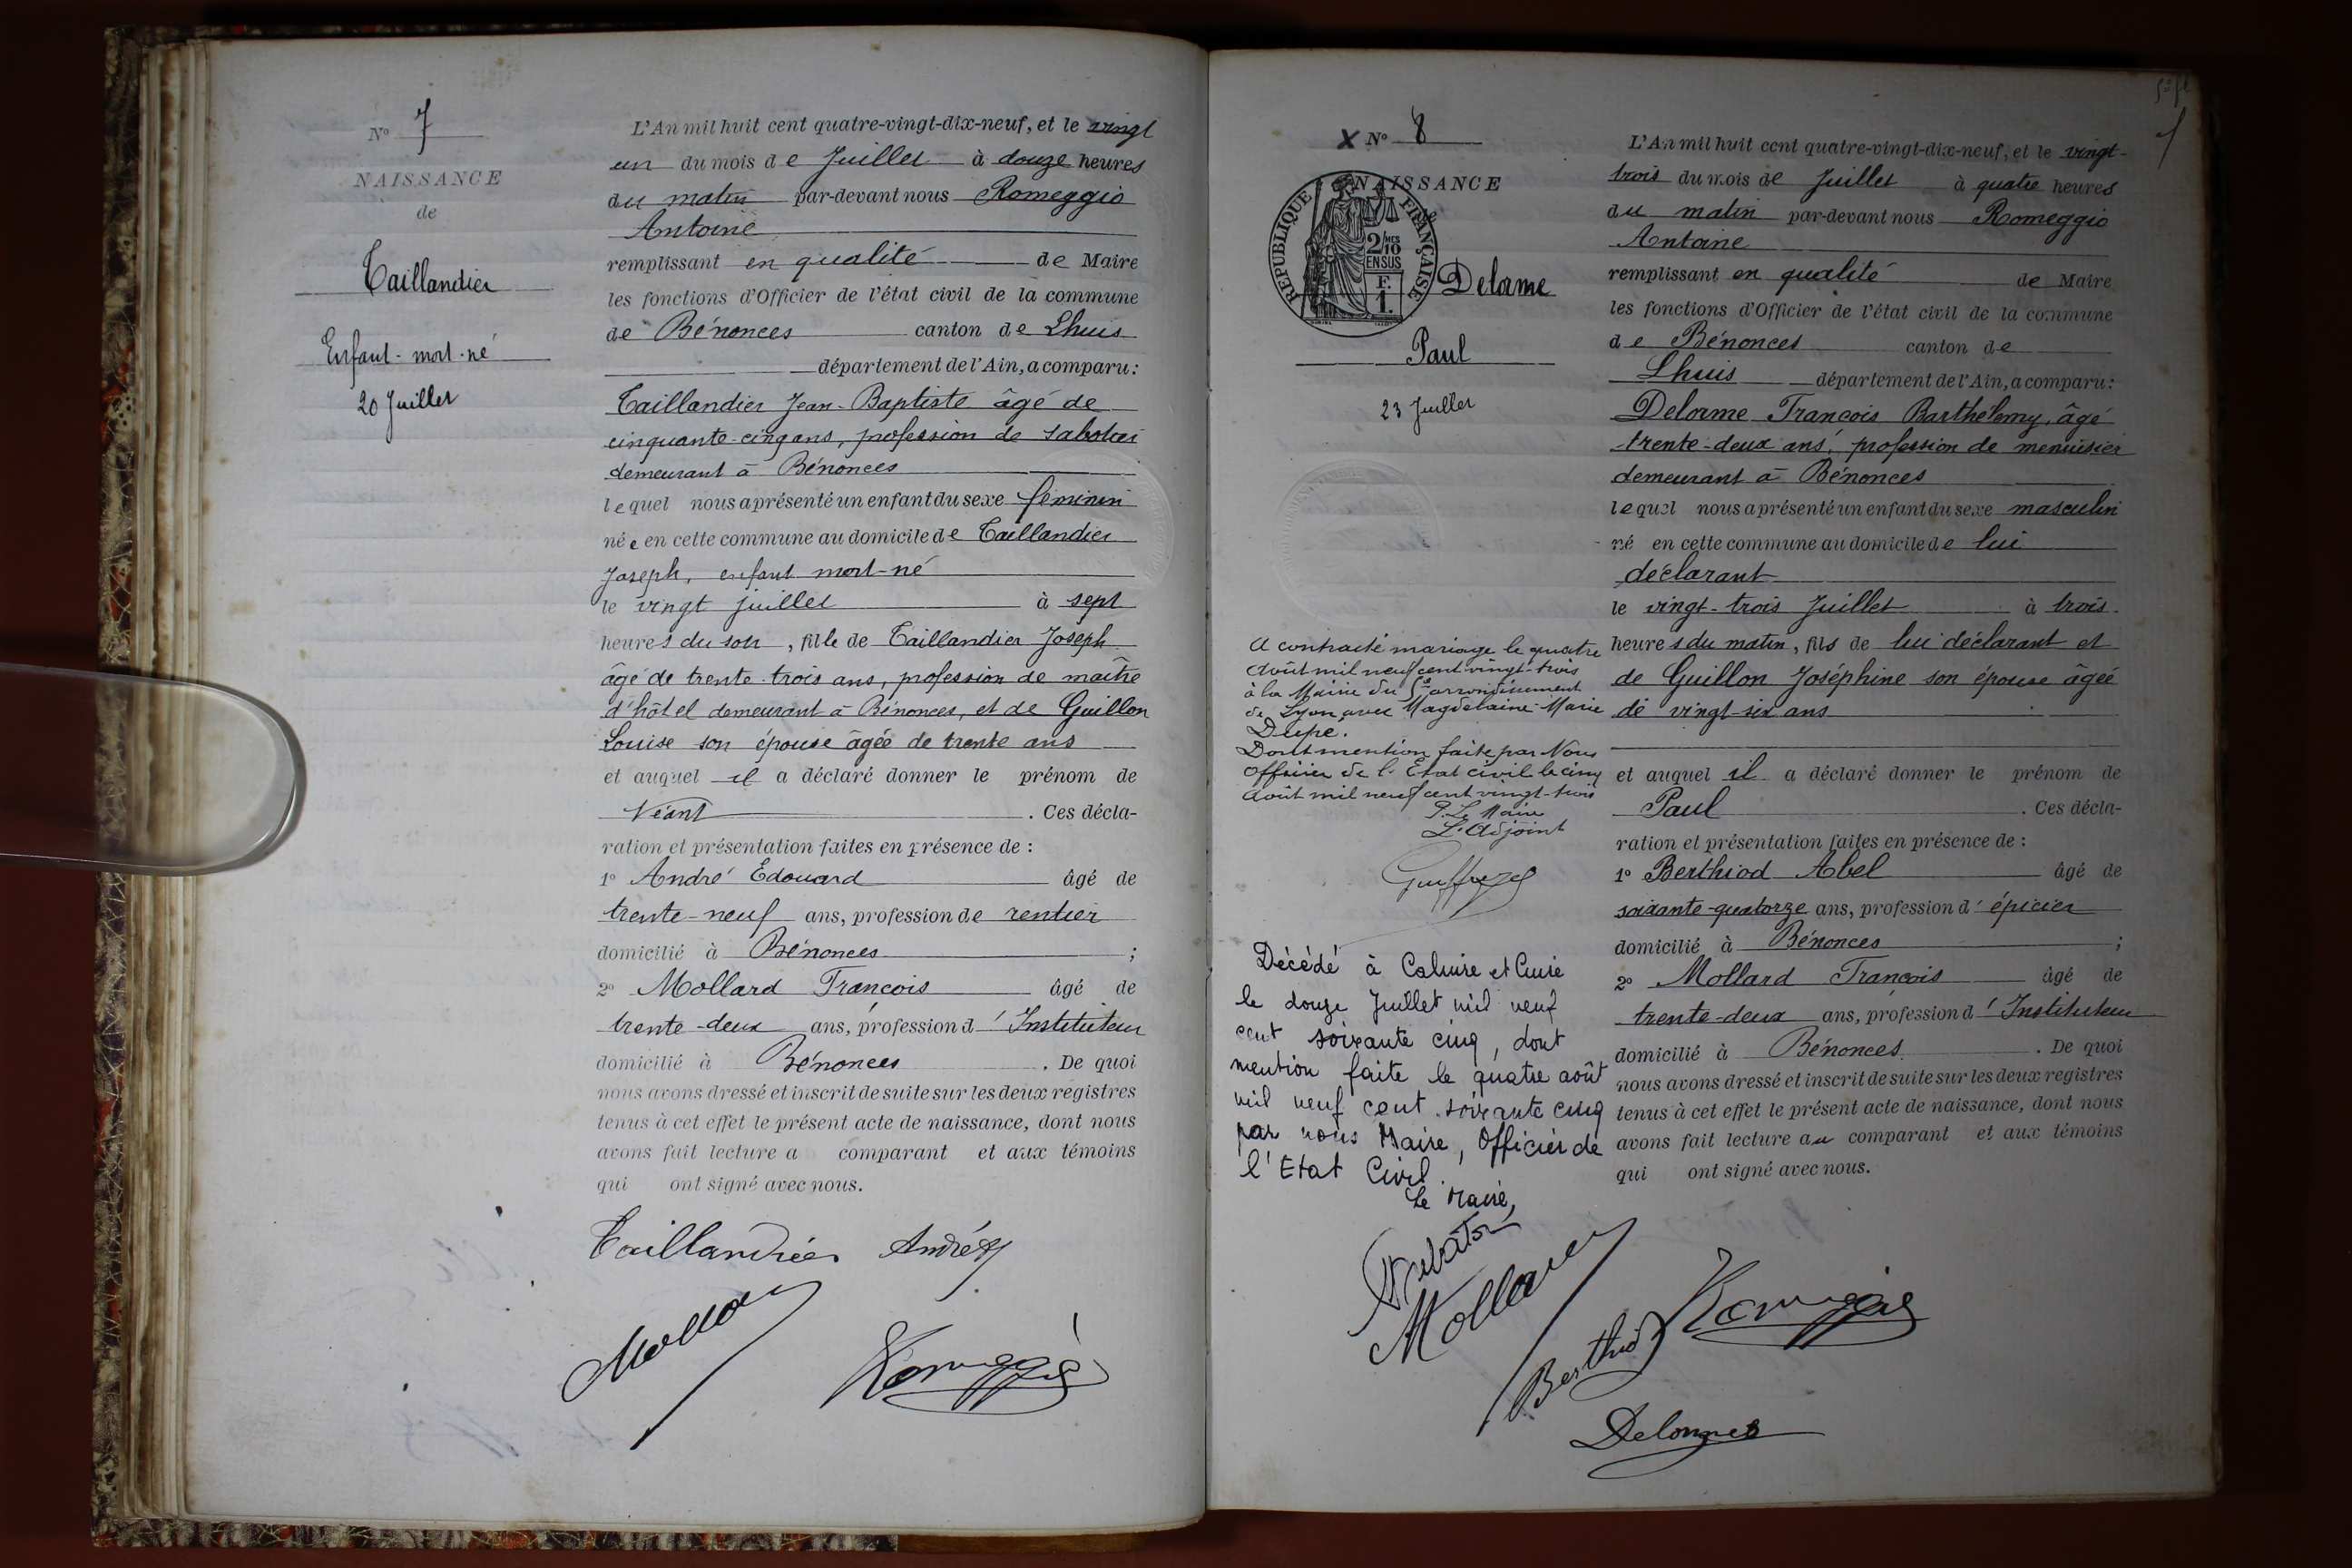 N° 7
NAISSANCE
de
Taillandier
Enfant-mort-né
20 Juillet
L'An mil huit cent quatre-vingt-dix-neuf, et le vingt
un du mois de Juillet à douze heures
du matin par-devant nous Romeggio
Antoine
remplissant en qualité de Maire
les fonctions d'Officier de l'état civil de la commune
de Bénonces canton de Lhuis
département de l'Ain, a comparu:
Taillandier Jean-Baptiste âgé de
cinquante-cinq ans, profession de sabotier
demeurant à Bénonces
lequel nous a présenté un enfant du sexe féminin
née en cette commune au domicile de Taillandier
Joseph, enfant mort-né
le vingt juillet à sept
heures du soir, fille de Taillandier Joseph
âgé de trente-trois ans, profession de maître
d'hôtel demeurant à Bénonces, et de Guillon
Louise son épouse âgée de trente ans
et auquel il a déclaré donner le prénom de
Néant . Ces décla-
ration et présentation faites en présence de :
1° André Edouard âgé de
trente-neuf ans, profession de rentier
domicilié à Bénonces ;
2° Mollard François âgé de
trente-deux ans, profession d'Instituteur
domicilié à Bénonces . De quoi
nous avons dressé et inscrit de suite sur les deux registres
tenus à cet effet le présent acte de naissance, dont nous
avons fait lecture a comparant et aux témoins
qui ont signé avec nous.
Taillandier André
Mollard
Romeggio
X N° 8
NAISSANCE
REPUBLIQUE FRANÇAISE
2/10 MES
EN SUS
F.
1.
Delorme
Paul
23 Juillet
A contracté mariage le quatre
Août mil neuf cent vingt-trois
à la Mairie du 5e arrondissement
de Lyon avec Magdelaine Marie
Dupe.
Dont mention faite par Nous
Officier de l'Etat civil le cinq
Août mil neuf cent vingt-trois
P. Le Maire
L'Adjoint
Décédé à Caluire et Cuire
le douze Juillet mil neuf
cent soixante cinq, dont
mention faite le quatre août
mil neuf cent soixante cinq
par nous Maire, Officier de
l'Etat Civil.
Le Maire,
L'An mil huit cent quatre-vingt-dix-neuf, et le vingt-
trois du mois de Juillet à quatre heures
du matin par-devant nous Romeggio
Antoine
remplissant en qualité de Maire
les fonctions d'Officier de l'état civil de la commune
de Bénonces canton de
Lhuis département de l'Ain, a comparu:
Delorme François Barthélemy, âgé
trente-deux ans, profession de menuisier
demeurant à Bénonces
lequel nous a présenté un enfant du sexe masculin
né en cette commune au domicile de lui
déclarant
le vingt-trois Juillet à trois
heures du matin, fils de lui déclarant et
de Guillon Joséphine son épouse âgée
de vingt-six ans
et auquel il a déclaré donner le prénom de
Paul . Ces décla-
ration et présentation faites en présence de :
1° Berthiod Abel âgé de
soixante-quatorze ans, profession d'épicier
domicilié à Bénonces ;
2° Mollard François âgé de
trente-deux ans, profession d'Instituteur
domicilié à Bénonces . De quoi
nous avons dressé et inscrit de suite sur les deux registres
tenus à cet effet le présent acte de naissance, dont nous
avons fait lecture au comparant et aux témoins
qui ont signé avec nous.
Mollard
Berthiod
Romeggio
Delorme